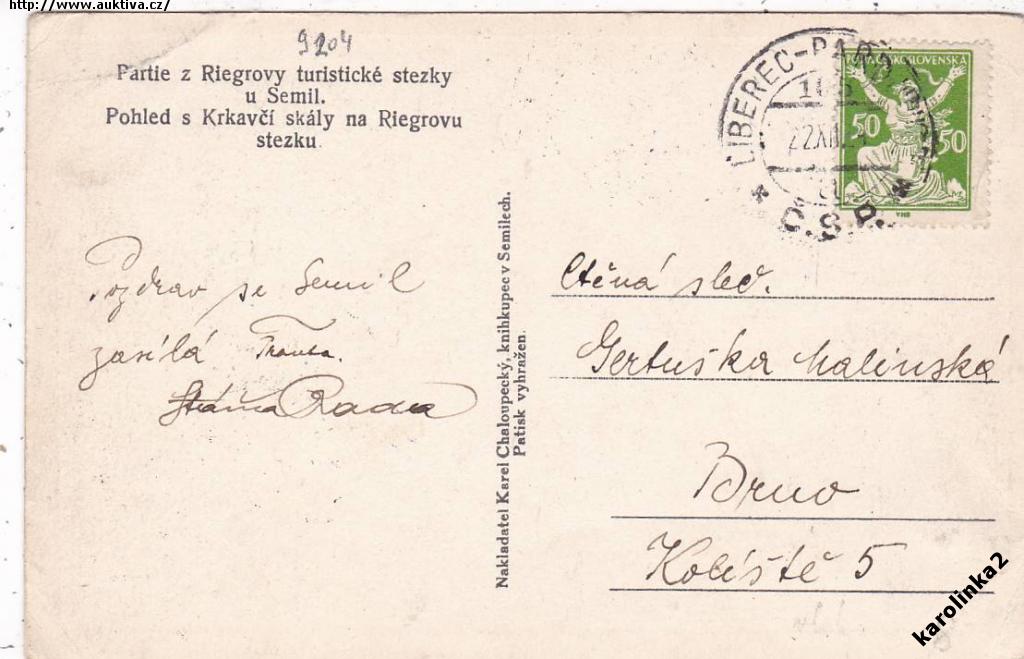 http://www.auktiva.cz/
9204
Partie z Riegrovy turistické stezky
u Semil.
Pohled s Krkavčí skály na Riegrovu
stezku.
Pozdrav se Semil
zasílá Franta.
Rada
Nakladatel Karel Chaloupecký, knihkupec v Semilech.
Patisk vyhražen.
LIBEREC-PARD
22XII
Č.S.P.
POŠTA ČESKOSLOVENSKÁ
50 50
Ctěná sleč.
Gertuška Malinská
Brno
Koliště 5
karolinka2